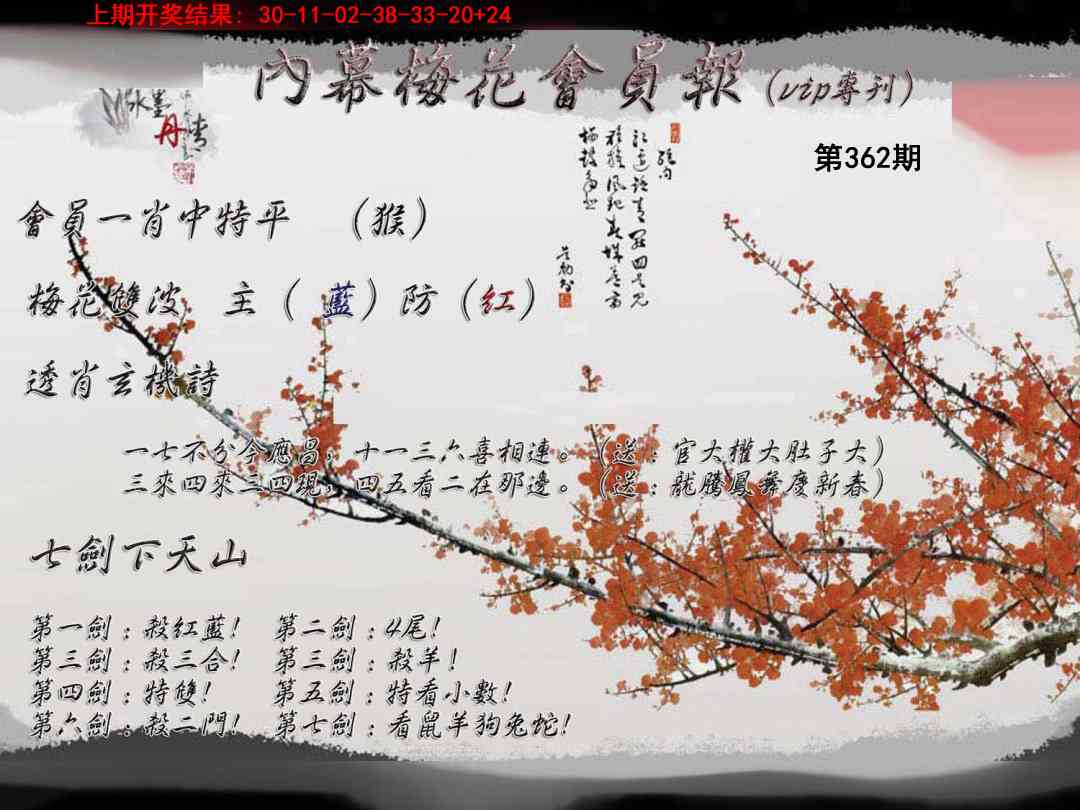 上期开奖结果: 30-11-02-38-33-20+24
內幕梅花會員報(vip專刊)
水墨
丹青
第362期
會員一肖中特平 (猴)
梅花雙波 主(藍)防(紅)
透肖玄機詩
一七不分今應昌，十一三六喜相連。(送：官大權大肚子大)
三來四來三四現，四五看二在那邊。(送：龍騰鳳舞慶新春)
七劍下天山
第一劍：殺紅藍! 第二劍：4尾!
第三劍：殺三合! 第三劍：殺羊!
第四劍：特雙! 第五劍：特看小數!
第六劍：殺二門! 第七劍：看鼠羊狗兔蛇!